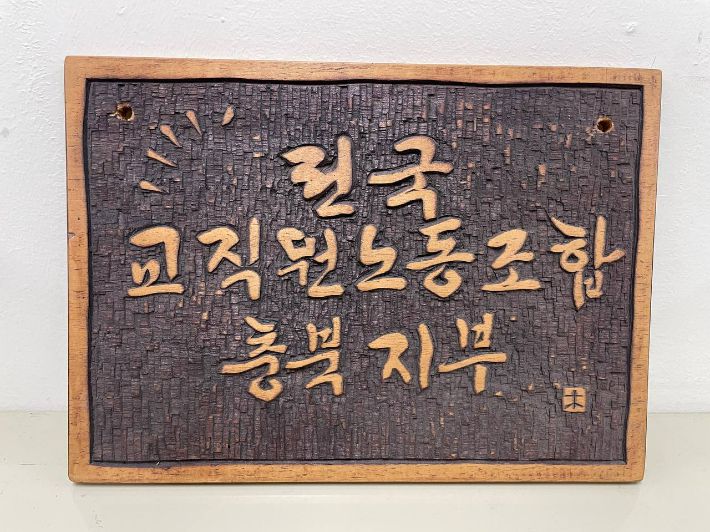 전국
교직원노동조합
충북 지부
木